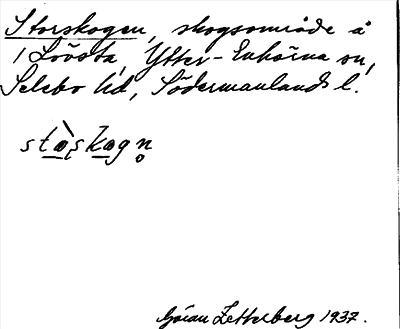 Storskogen, skogsområde å
1 Lövsta, Ytter-Enhörna sn,
Selebo hd, Södermanlands l.
stò̱ʂko̱gn̥
Göran Zetterberg 1937.